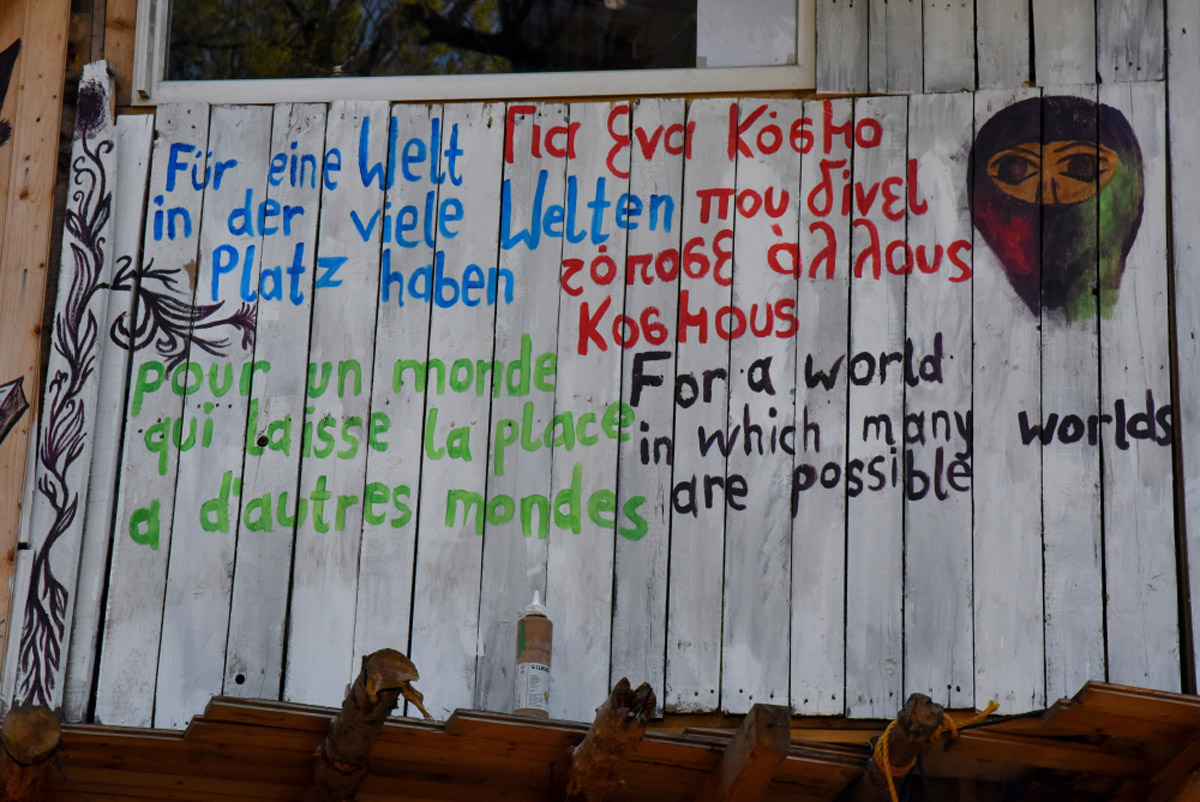 Für eine Welt
in der viele Welten
Platz haben
Για ξνα Κόσμο
που δίνει
τόποσε άλλους
Κοσμους
pour un monde
qui laisse la place
a d'autres mondes
For a world
in which many worlds
are possible